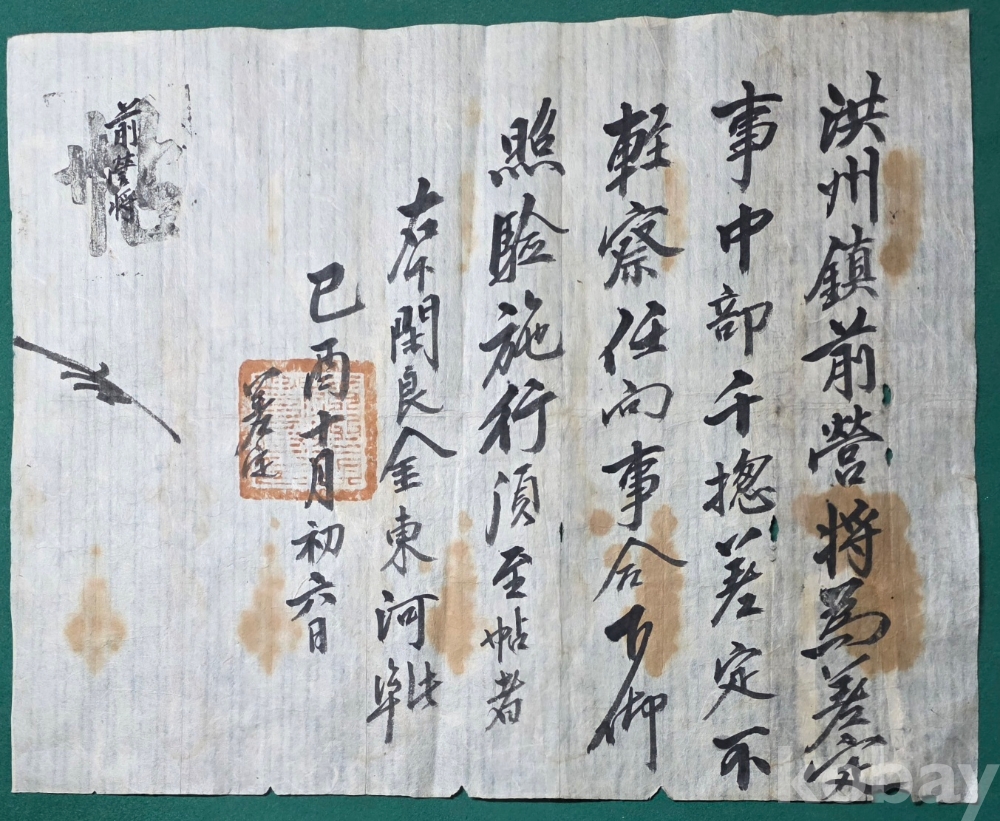 洪州鎮前營將爲差定
事中部千摠差定不
輕察任向事合下仰
照驗施行須至帖者
右下閑良金東河 準此
己酉十月初六日
差定
帖
前營將
kobay